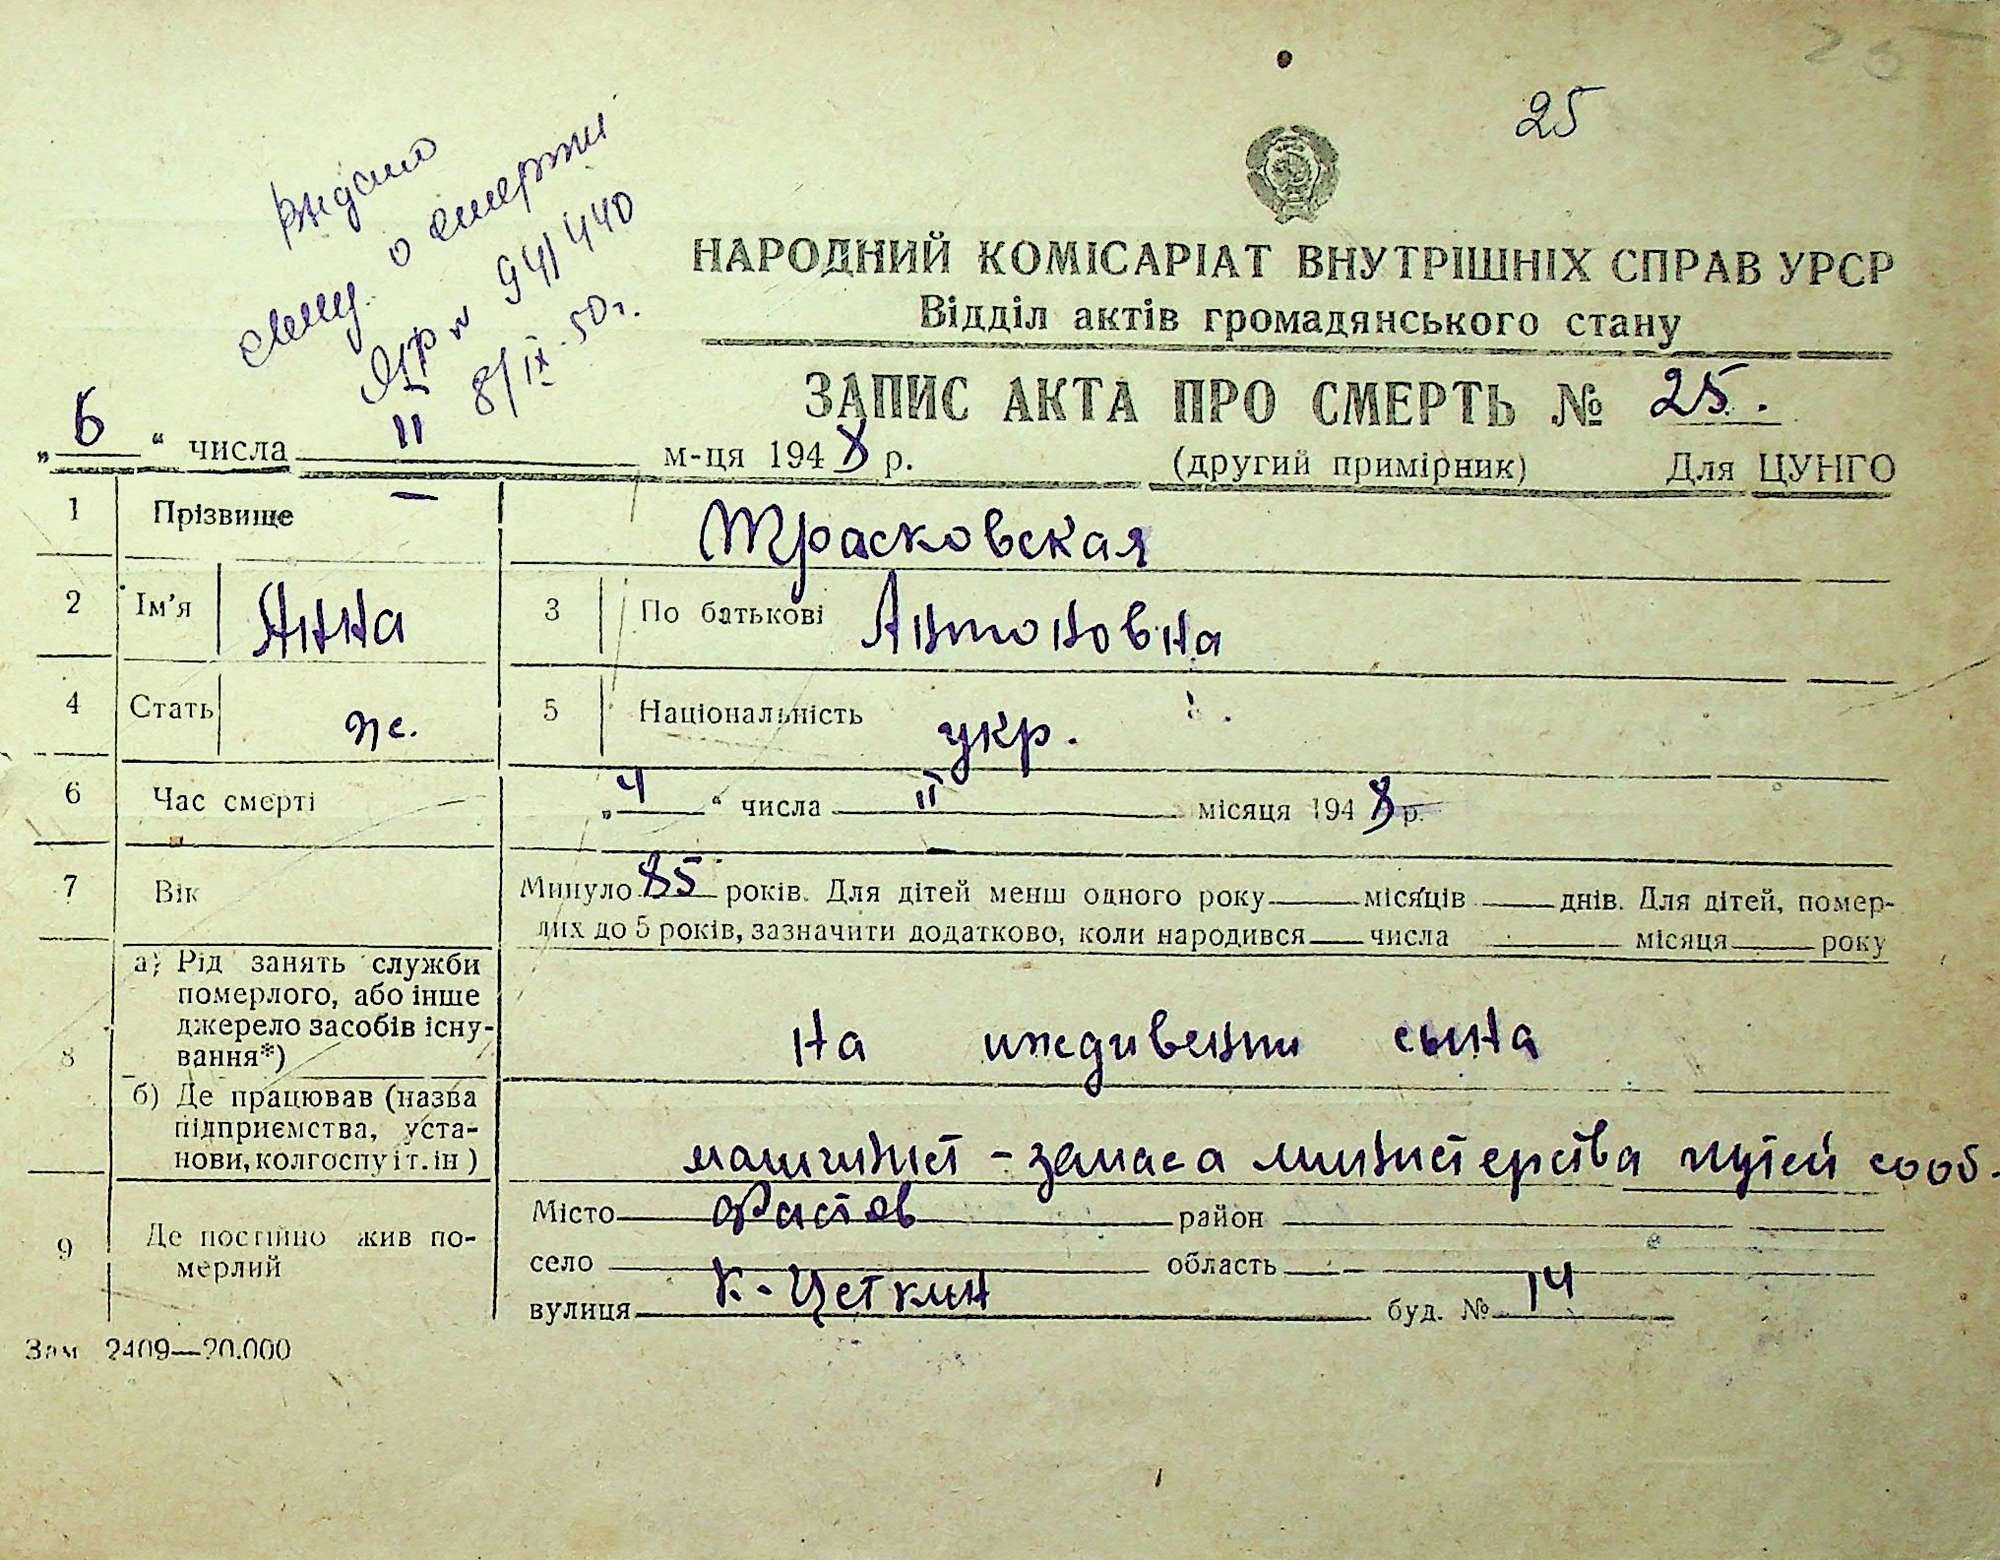 25
25
видано
о смерти
№ 941440
8/IX-50г.
НАРОДНИЙ КОМІСАРІАТ ВНУТРІШНІХ СПРАВ УРСР
Відділ актів громадянського стану
ЗАПИС АКТА ПРО СМЕРТЬ № 25.
„6“ числа II м-ця 1948 р. (другий примірник) Для ЦУНГО
1 Прізвище Трасковская
2 Ім'я Анна 3 По батькові Антоновна
4 Стать ж. 5 Національність укр.
6 Час смерті „4“ числа II місяця 1948 р.
7 Вік Минуло 85 років. Для дітей менш одного року місяців днів. Для дітей, помер-
лих до 5 років, зазначити додатково, коли народився числа місяця року
8 а) Рід занять служби
померлого, або інше
джерело засобів існу-
вання*) на иждивении сына
б) Де працював (назва
підприємства, уста-
нови, колгоспу і т. ін) машинист - запаса министерства путей сооб.
9 Де постійно жив по-
мерлий
Місто Фастов район
село область
вулиця К-Цеткин буд. № 14
Зам 2409—20.000